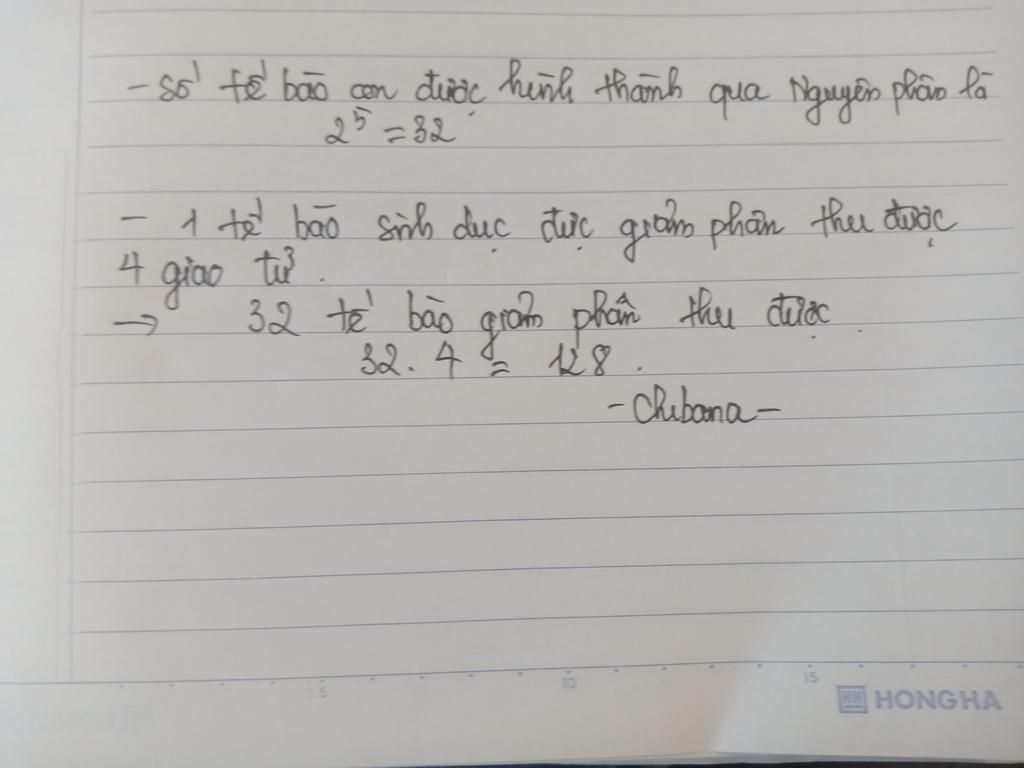 - Số tế bào con được hình thành qua Nguyên phân là
2⁵ = 32
- 1 tế bào sinh dục đực giảm phân thu được
4 giao tử.
→ 32 tế bào giảm phân thu được
32.4 = 128.
- Chibana -
5 5 10 15
HH HONG HA